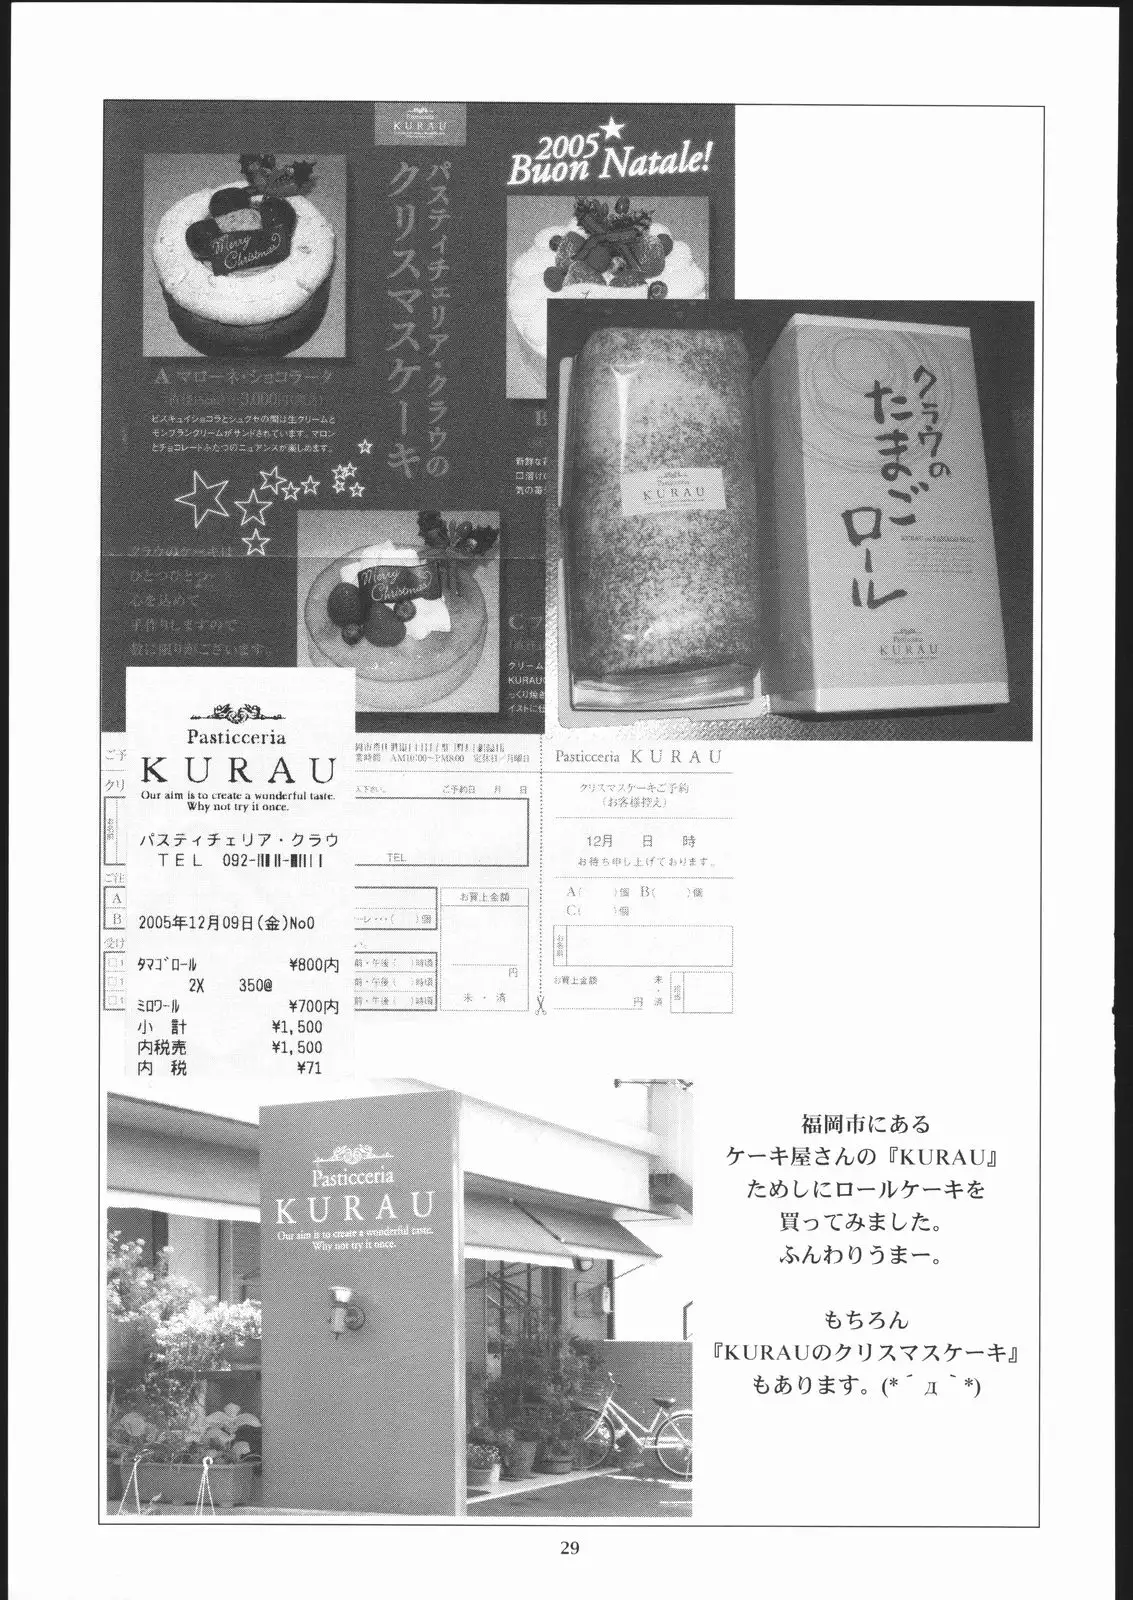 Pasticceria
KURAU
パスティチェリア・クラウの
クリスマスケーキ
2005★
Buon Natale!
Merry
Christmas
A マローネ・ショコラータ
ビスキュイショコラとシュクセの間は生クリームと
モンブランクリームがサンドされています。マロン
とチョコレートふたつのニュアンスが楽しめます。
B
新鮮な
口溶け
気の苺
クラウのケーキは
ひとつひとつ
心を込めて
手作りしますので
数に限りがございます。
Merry
Christmas
C
クリーム
KURAU
っくり焼き
イストに仕
Pasticceria
KURAU
クラウの
たまご
ロール
Pasticceria
KURAU
Pasticceria
KURAU
Our aim is to create a wonderful taste.
Why not try it once.
パスティチェリア・クラウ
TEL 092-
2005年12月09日(金)No0
ﾀﾏｺﾞﾛｰﾙ ¥800内
2X 350@
ﾐﾛﾜｰﾙ ¥700内
小 計 ¥1,500
内税売 ¥1,500
内 税 ¥71
ご予
クリ
お名前
ご注
A
B
受け
営業時間 AM10:00〜PM8:00 定休日/月曜日
ご予約日 月 日
TEL
( )個
前・午後( )時頃
前・午後( )時頃
前・午後( )時頃
お買上金額
円
未・済
Pasticceria KURAU
クリスマスケーキご予約
(お客様控え)
12月 日 時
お待ち申し上げております。
A( )個 B( )個
C( )個
お名前
お買上金額
円
未・済
担当
Pasticceria
KURAU
Our aim is to create a wonderful taste.
Why not try it once.
福岡市にある
ケーキ屋さんの『KURAU』
ためしにロールケーキを
買ってみました。
ふんわりうまー。
もちろん
『KURAUのクリスマスケーキ』
もあります。(*´д｀*)
29